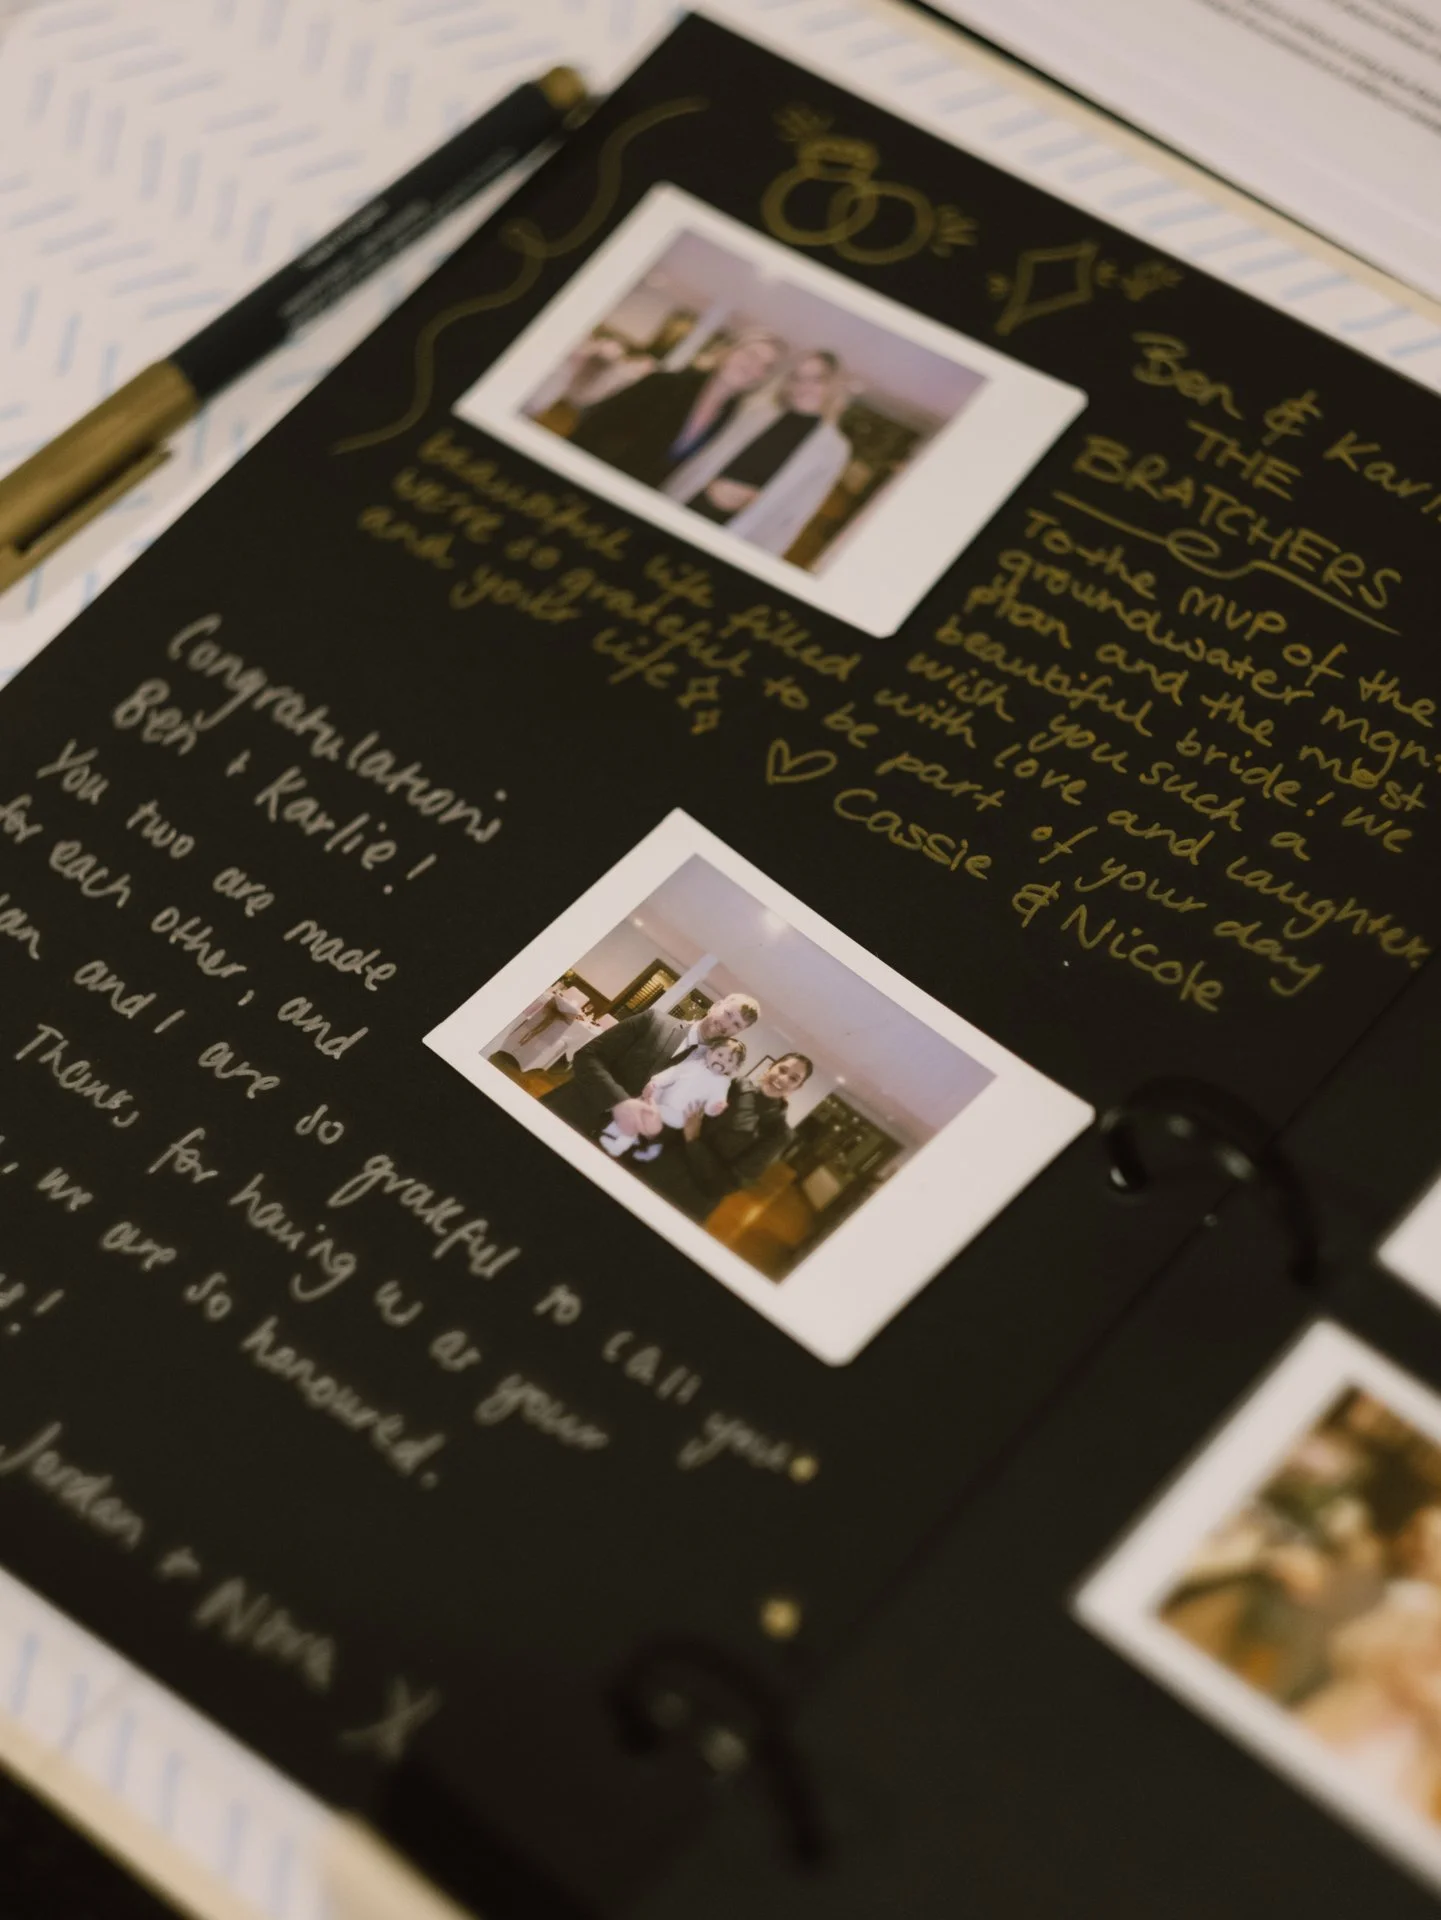 Ben & Karli
THE
BRATCHERS
To the MVP of the
groundwater mgnt
plan and the most
beautiful bride! We
wish you such a
beautiful life filled with love and laughter.
We're so grateful to be part of your day
and your life
♡ Cassie & Nicole
Congratulations
Ben + Karlie!
You two are made
for each other, and
and I are so grateful to call you
Thanks for having us as your
we are so honoured.
Jordan + Nova X